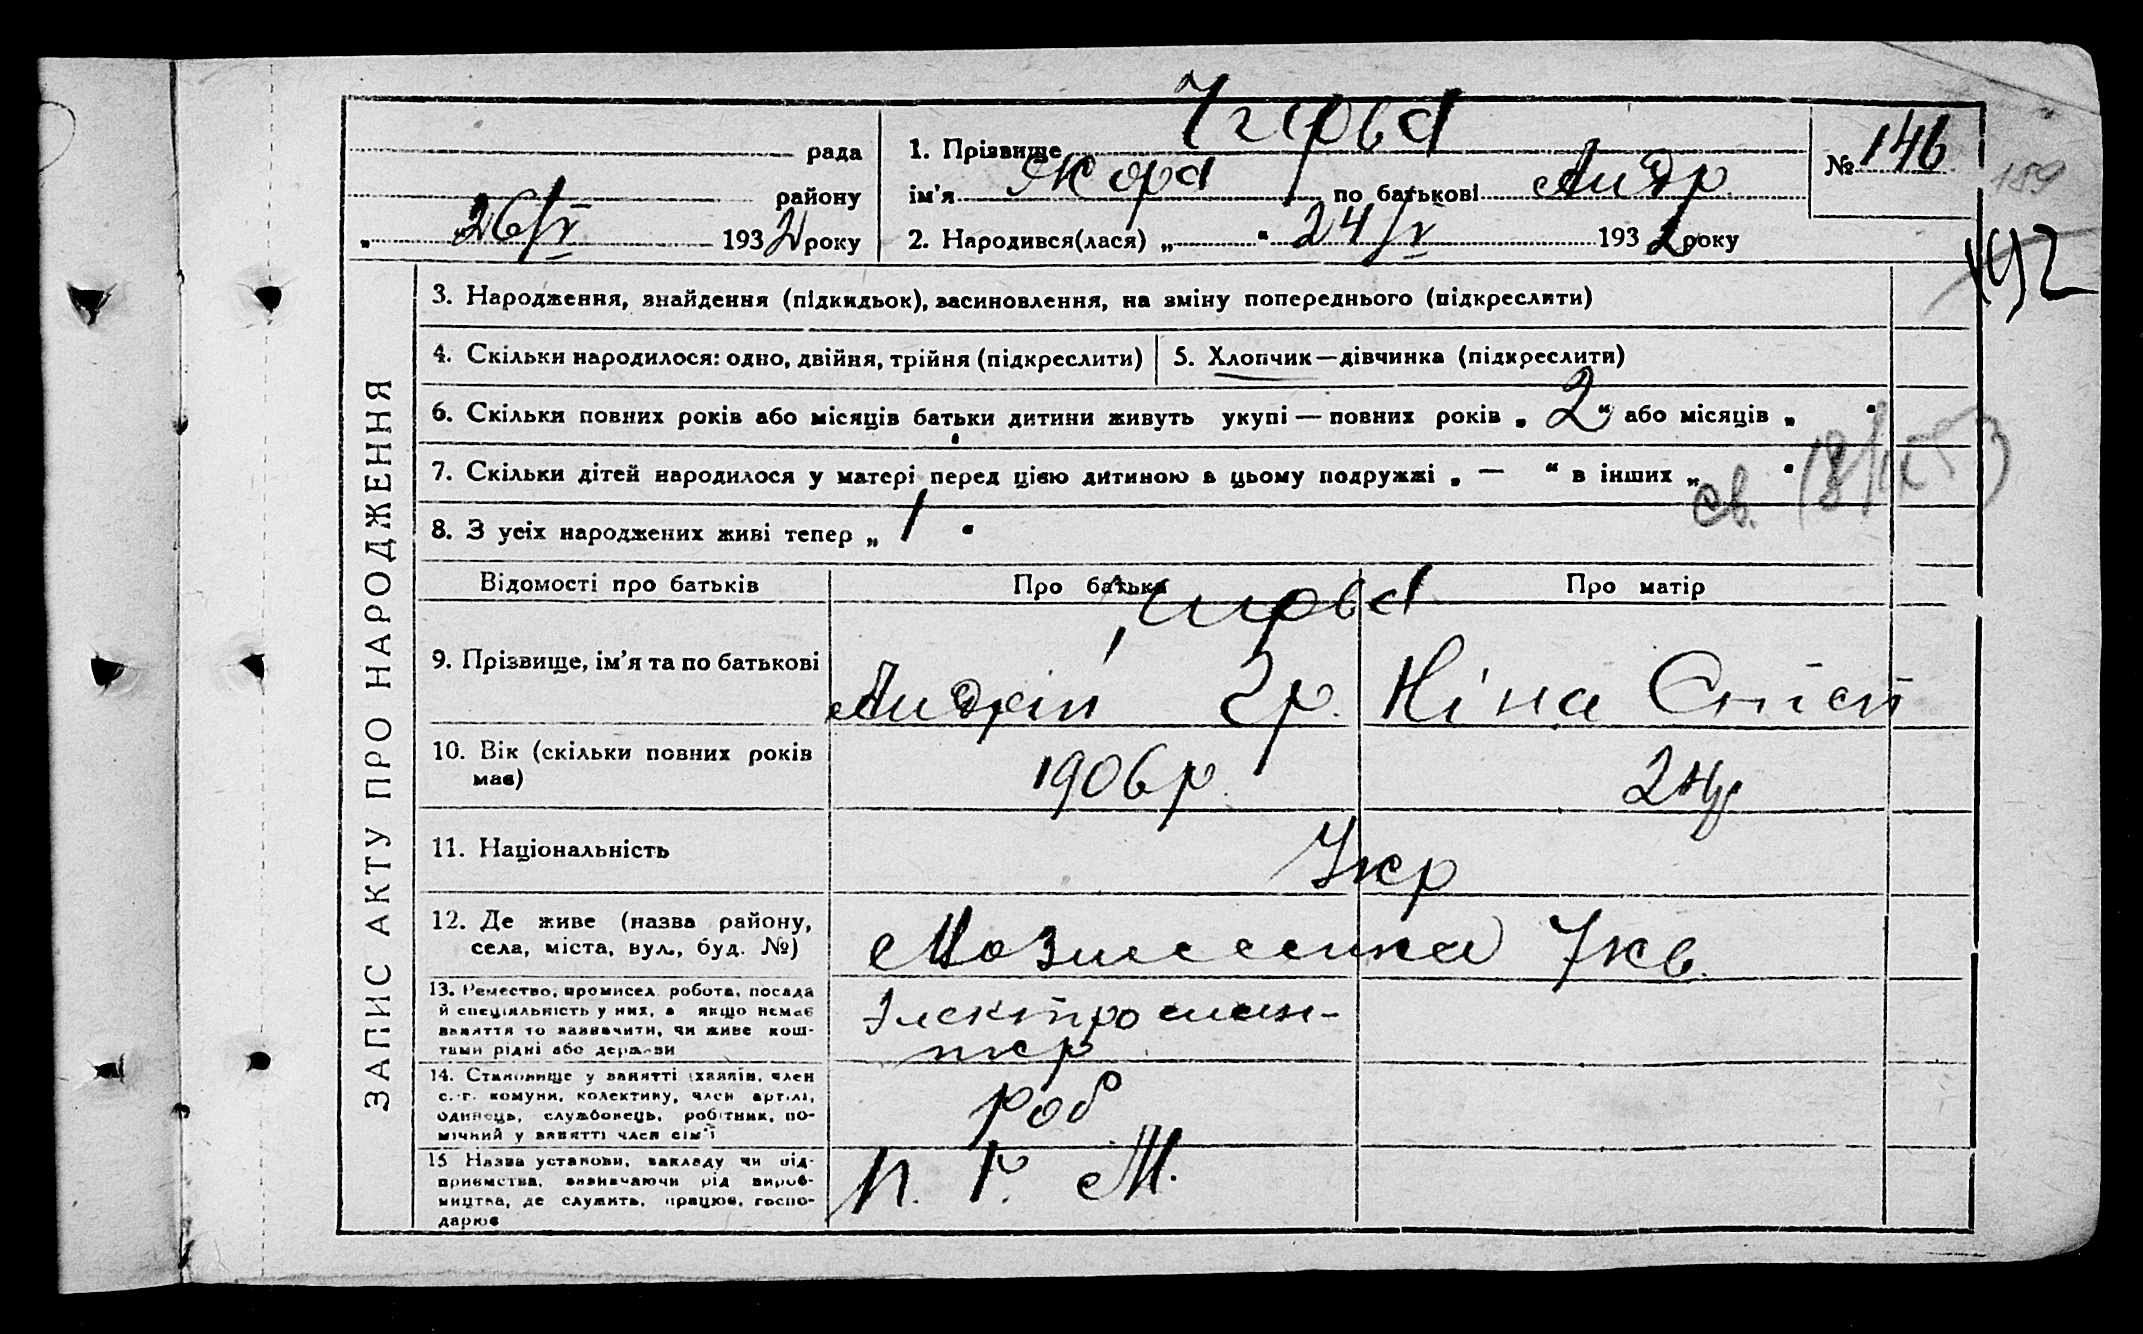 рада
району
„ 26/V 1932 року
1. Прізвище
ім'я Жора по батькові Андр.
2. Народився(лася) „ “ 24/V 1932 року
№ 146
159
192
ЗАПИС АКТУ ПРО НАРОДЖЕННЯ
3. Народження, знайдення (підкидьок), засиновлення, на зміну попереднього (підкреслити)
4. Скільки народилося: одно, двійня, трійня (підкреслити)
5. Хлопчик—дівчинка (підкреслити)
6. Скільки повних років або місяців батьки дитини живуть укупі — повних років „ 2 “ або місяців „ “
7. Скільки дітей народилося у матері перед цією дитиною в цьому подружжі „ — “ в інших „ “
св.
8. З усіх народжених живі тепер „ 1 “
Відомості про батьків
Про батька
Про матір
9. Прізвище, ім'я та по батькові
Андрій Гр.
Ніна
10. Вік (скільки повних років має)
1906 р.
24р
11. Національність
Укр
12. Де живе (назва району, села, міста, вул., буд. №)
Вознесенка 7 кв.
13. Ремество, промисел, робота, посада й спеціяльність у них, а якщо немає заняття то зазначити, чи живе коштами рідні або держави
Электромон-
тер
14. Становище у занятті (хазяїн, член с.-г. комуни, колективу, член артілі, одинець, службовець, робітник, помічний у занятті член сім'ї
роб
15 Назва установи, закладу чи підприємства, визначаючи рід виробництва, де служить, працює, господарює
П. Г. М.